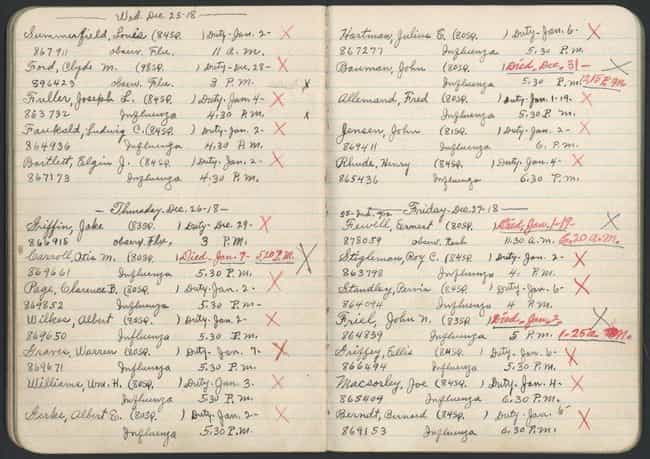 — Wed. Dec. 25-18 —
Summerfield, Louis (84SQ. ) Duty-Jan. 2- X
867911 observ. Flu. 11 A.M.
Ford, Clyde M. (98SQ. ) Duty-Dec. 28- X
896423 observ. Flu. 3 P.M. x
Fuller, Joseph L. (84SQ. ) Duty-Jan. 4- X
863732 Influenza 4.30 P.M. x
Fauskald, Ludwig C. (84SQ. ) Duty-Jan. 2- X
864936 Influenza 4.30 P.M.
Bartlett, Elgin J. (84SQ. ) Duty-Jan. 2- X
867173 Influenza 4.30 P.M.
— Thursday-Dec. 26-18 —
Griffin, Jake (83SQ. ) Duty-Dec. 29- X
866918 observ. Flu. 3 P.M.
Carroll, Otis M. (80SQ. ) Died. Jan. 7- 5.20 P.M. X
869661 Influenza 5.30 P.M.
Page, Clarence B. (80SQ. ) Duty-Jan. 2- X
869852 Influenza 5.30 P.M.
Wilkes, Albert (80SQ. ) Duty-Jan. 2- X
869650 Influenza 5.30 P.M.
Graves, Warren (80SQ. ) Duty-Jan. 7. X
869671 Influenza 5.30 P.M.
Williams, Wm. H. (80SQ. ) Duty-Jan. 3. X
Influenza 5.30 P.M.
Gerke, Albert E. (80SQ. ) Duty-Jan. 2- X
Influenza 5.30 P.M.
Hartman, Julius E. (80SQ. ) Duty-Jan. 6- X
867277 Influenza 5.30 P.M.
Bauman, John (80SQ. ) Died, Dec. 31- X
Influenza 5.30 P.M. 12.15 P.M.
Allemand, Fred (80SQ. ) Duty-Jan-1-19. X
Influenza 5.30 P.M.
Jensen, John (81SQ. ) Duty-Jan. 2- X
869411 Influenza 6. P.M.
Rhude, Henry (84SQ. ) Duty-Jan. 4- X
865436 Influenza 6.30 P.M.
— Friday-Dec. 27-18 —
Fewell, Ernest (80SQ. ) Died, Jan. 1-19- X
878059 observ. 11.30 A.M. 6.20 A.M.
Stigleman, Roy C. (84SQ. ) Duty-Jan. 2- X
863798 Influenza 4. P.M.
Standley, (84SQ. ) Duty-Jan. 6- X
864094 Influenza 4 P.M.
Friel, John N. (83SQ. ) Died, Jan. 2, X
864839 Influenza 5 P.M. 1.25 A.M.
Griffey, Ellis (84SQ. ) Duty-Jan. 6- X
866494 Influenza 5.30 P.M.
Macsorley, Joe (84SQ. ) Duty-Jan. 4- X
865409 Influenza 6.30 P.M.
Berndt, Bernard (84SQ. ) Duty-Jan. 5 X
869153 Influenza 6.30 P.M.